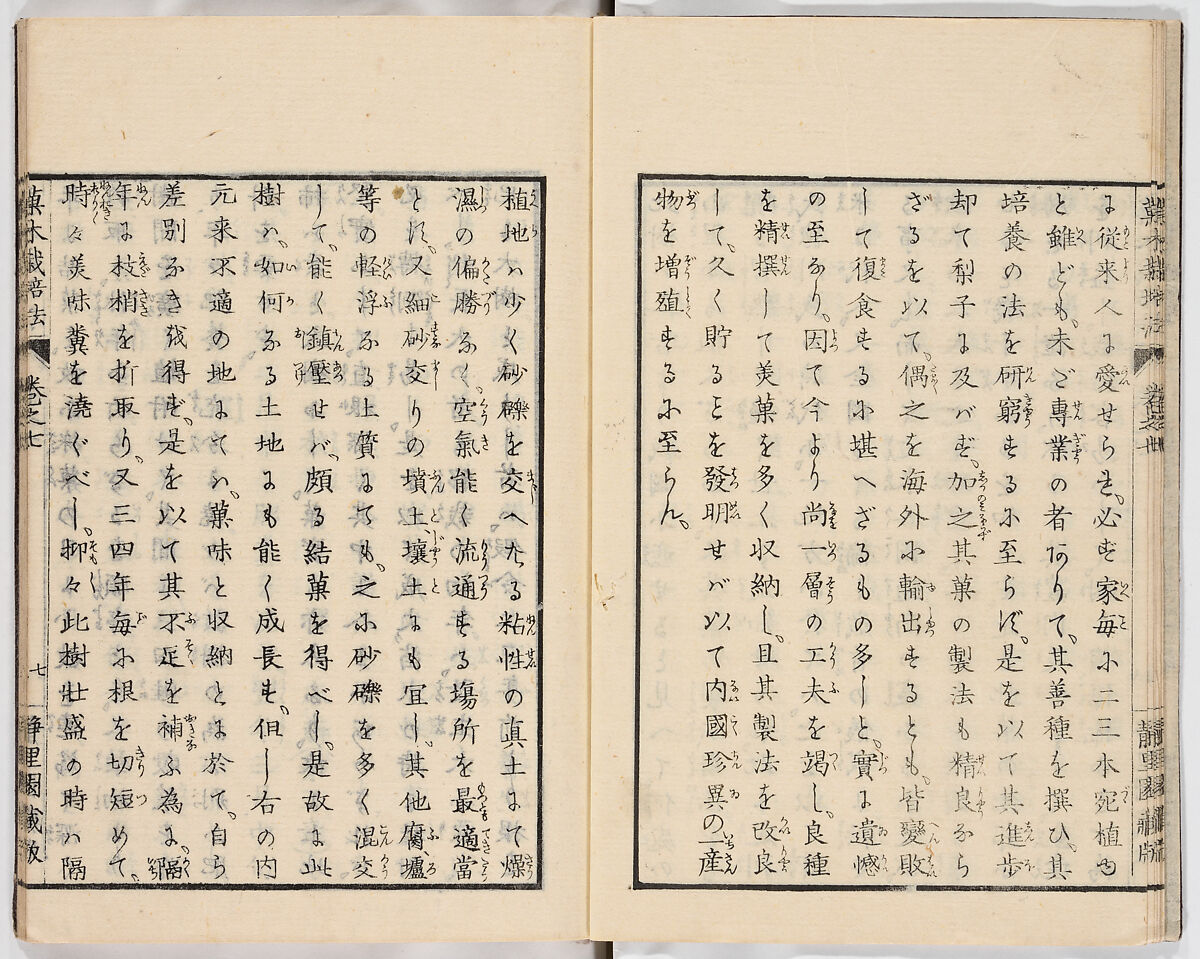 に従来人に愛せらる、必ず家毎に二三本宛植る
と雖ども、未だ専業の者ありて、其善種を撰ひ、其
培養の法を研窮するに至らず、是を以て其進歩
却て梨子に及バず、加之其菓の製法も精良なら
ざるを以て、偶之を海外に輸出するとも、皆變敗
して復食するに堪へざるもの多しと、實に遺憾
の至なり、因て今より尚一層の工夫を竭し、良種
を精撰して美菓を多く収納し、且其製法を改良
して、久く貯るを發明せバ以て内國珍異の一産
物を増殖するに至らん、
菓木栽培法
卷之七
七
静里園蔵版
植地ハ少く砂礫を交へたる粘性の真土にて燥
濕の偏勝なく、空氣能く流通する塲所を最適當
とす、又細砂交りの墳土壤土にも宜し、其他腐壚
等の軽浮なる土質にても、之に砂礫を多く混交
して、能く鎮壓せバ、頗る結菓を得べし、是故に此
樹ハ、如何なる土地にも能く成長す、但し右の内
元来不適の地にてハ、菓味と収納とに於て、自ら
差別なき能得ず、是を以て其不足を補ふ為に、隔
年に枝梢を折取り、又三四年毎に根を切短めて、
時々美味糞を澆ぐべし、抑々此樹壮盛の時ハ隔
菓木栽培法
卷之七
七
静里園蔵版